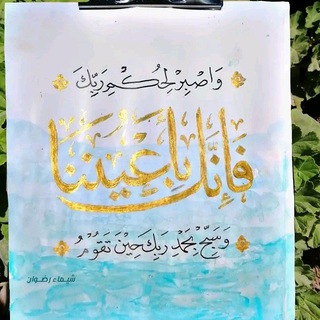 وَاصْبِرْ لِحُكْمِ رَبِّكَ
فَإِنَّكَ بِأَعْيُنِنَا
وَسَبِّحْ بِحَمْدِ رَبِّكَ حِينَ تَقُومُ
شيماء رضوان